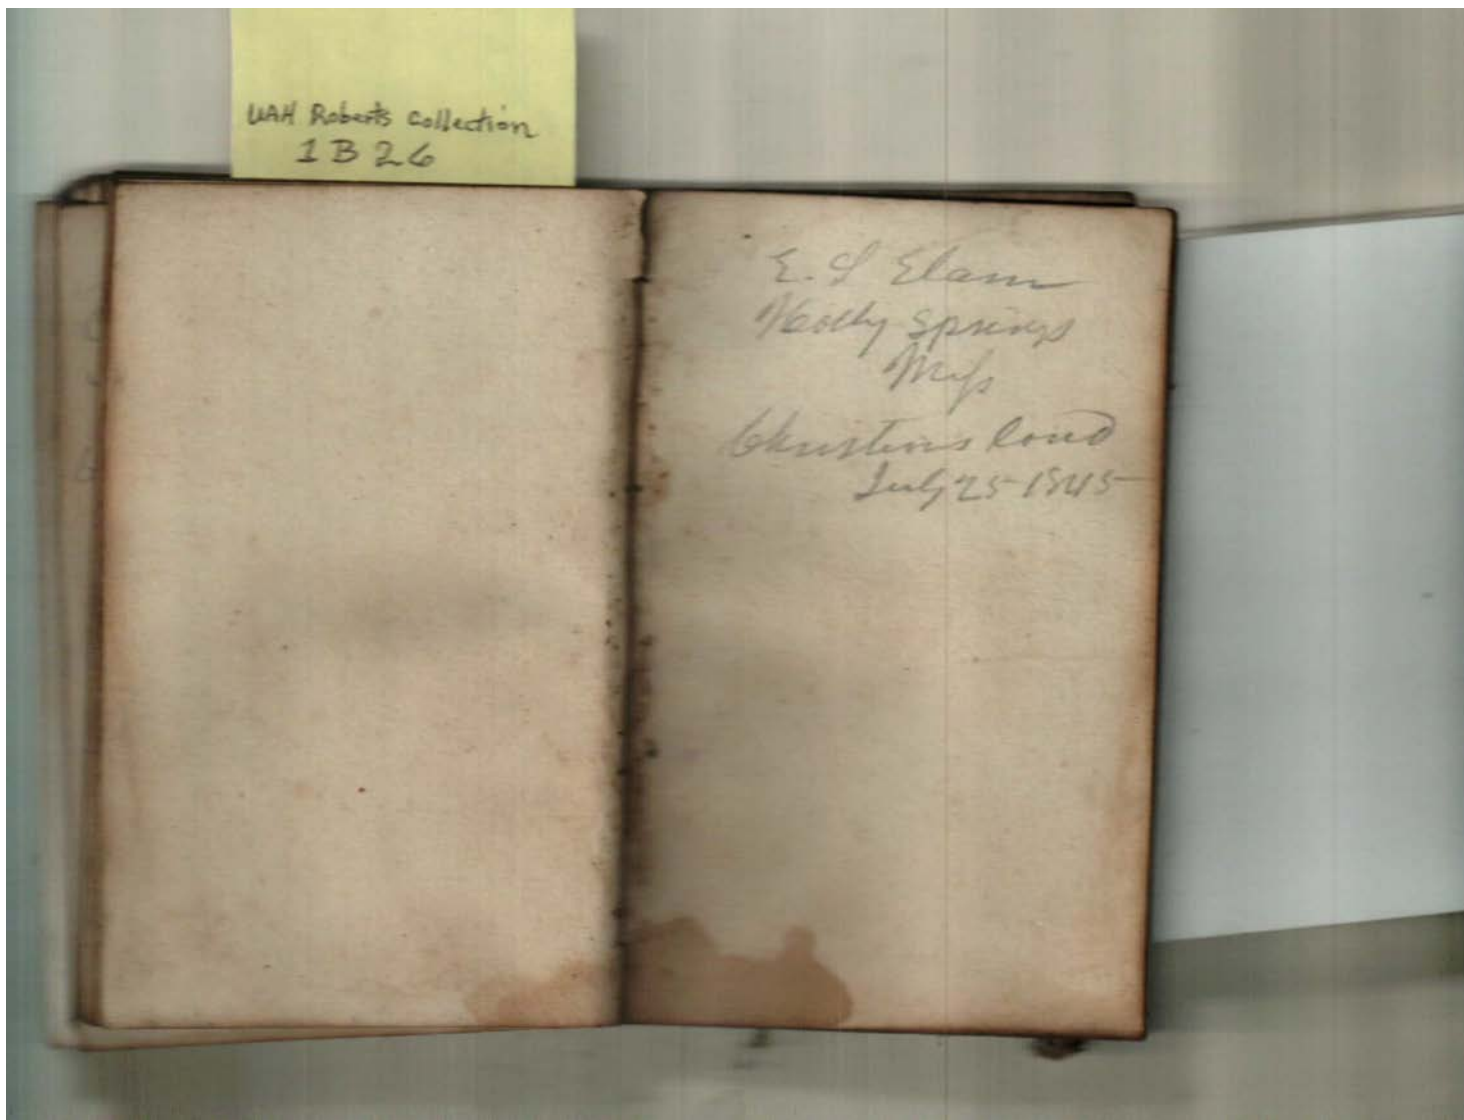 UAH Roberts Collection
1 B 26
E. S Elam
Holly Springs
Miss
July 25 1845